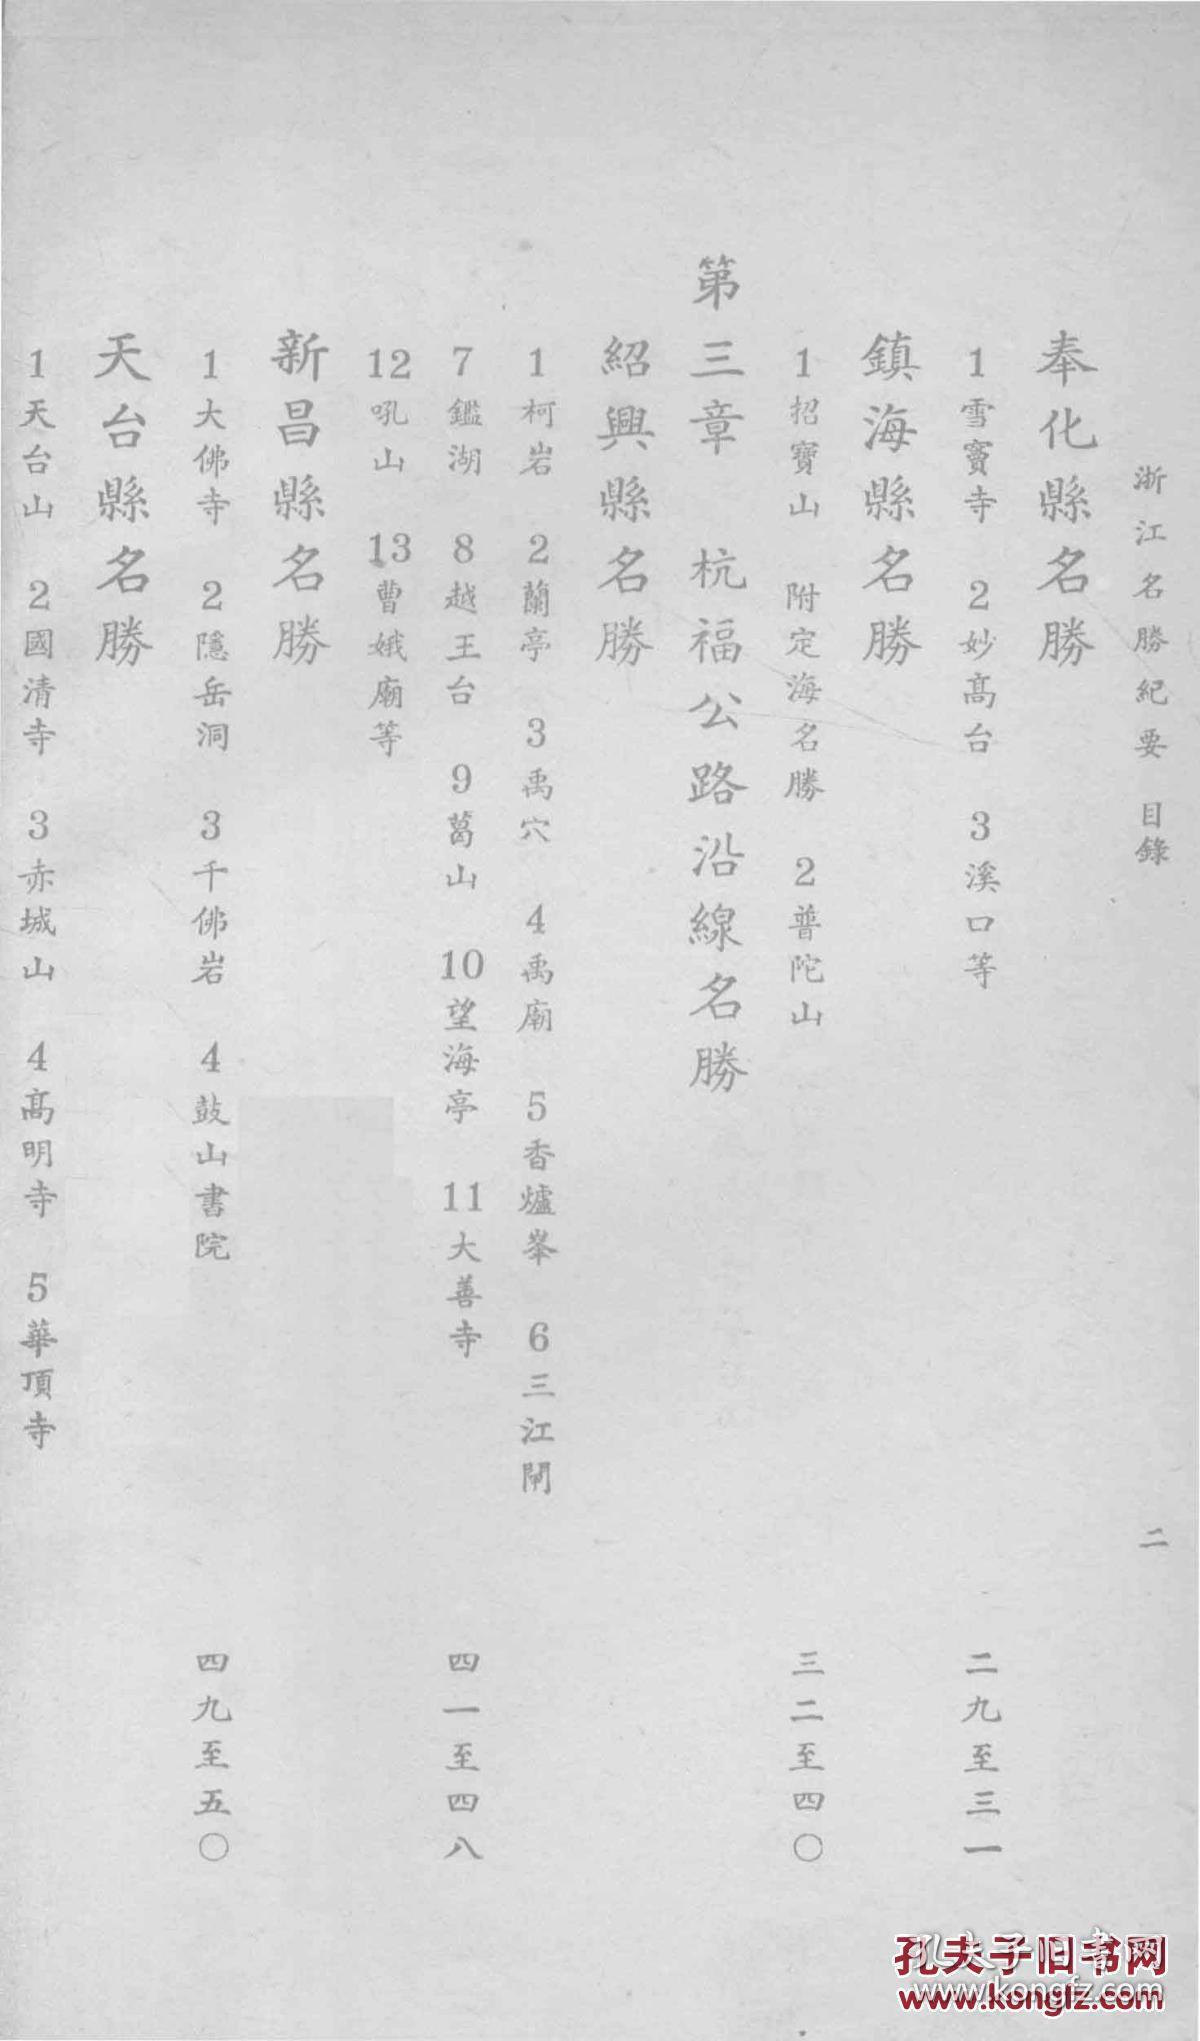 浙江名勝紀要 目錄 二
奉化縣名勝
1雪竇寺 2妙高台 3溪口等 二九至三一
鎮海縣名勝
1招寶山 附定海名勝 2普陀山 三二至四〇
第三章 杭福公路沿線名勝
紹興縣名勝
1柯岩 2蘭亭 3禹穴 4禹廟 5香爐峯 6三江閘
7鑑湖 8越王台 9葛山 10望海亭 11大善寺 四一至四八
12吼山 13曹娥廟等
新昌縣名勝
1大佛寺 2隱岳洞 3千佛岩 4鼓山書院 四九至五〇
天台縣名勝
1天台山 2國清寺 3赤城山 4高明寺 5華頂寺
孔夫子旧书网
www.kongfz.com